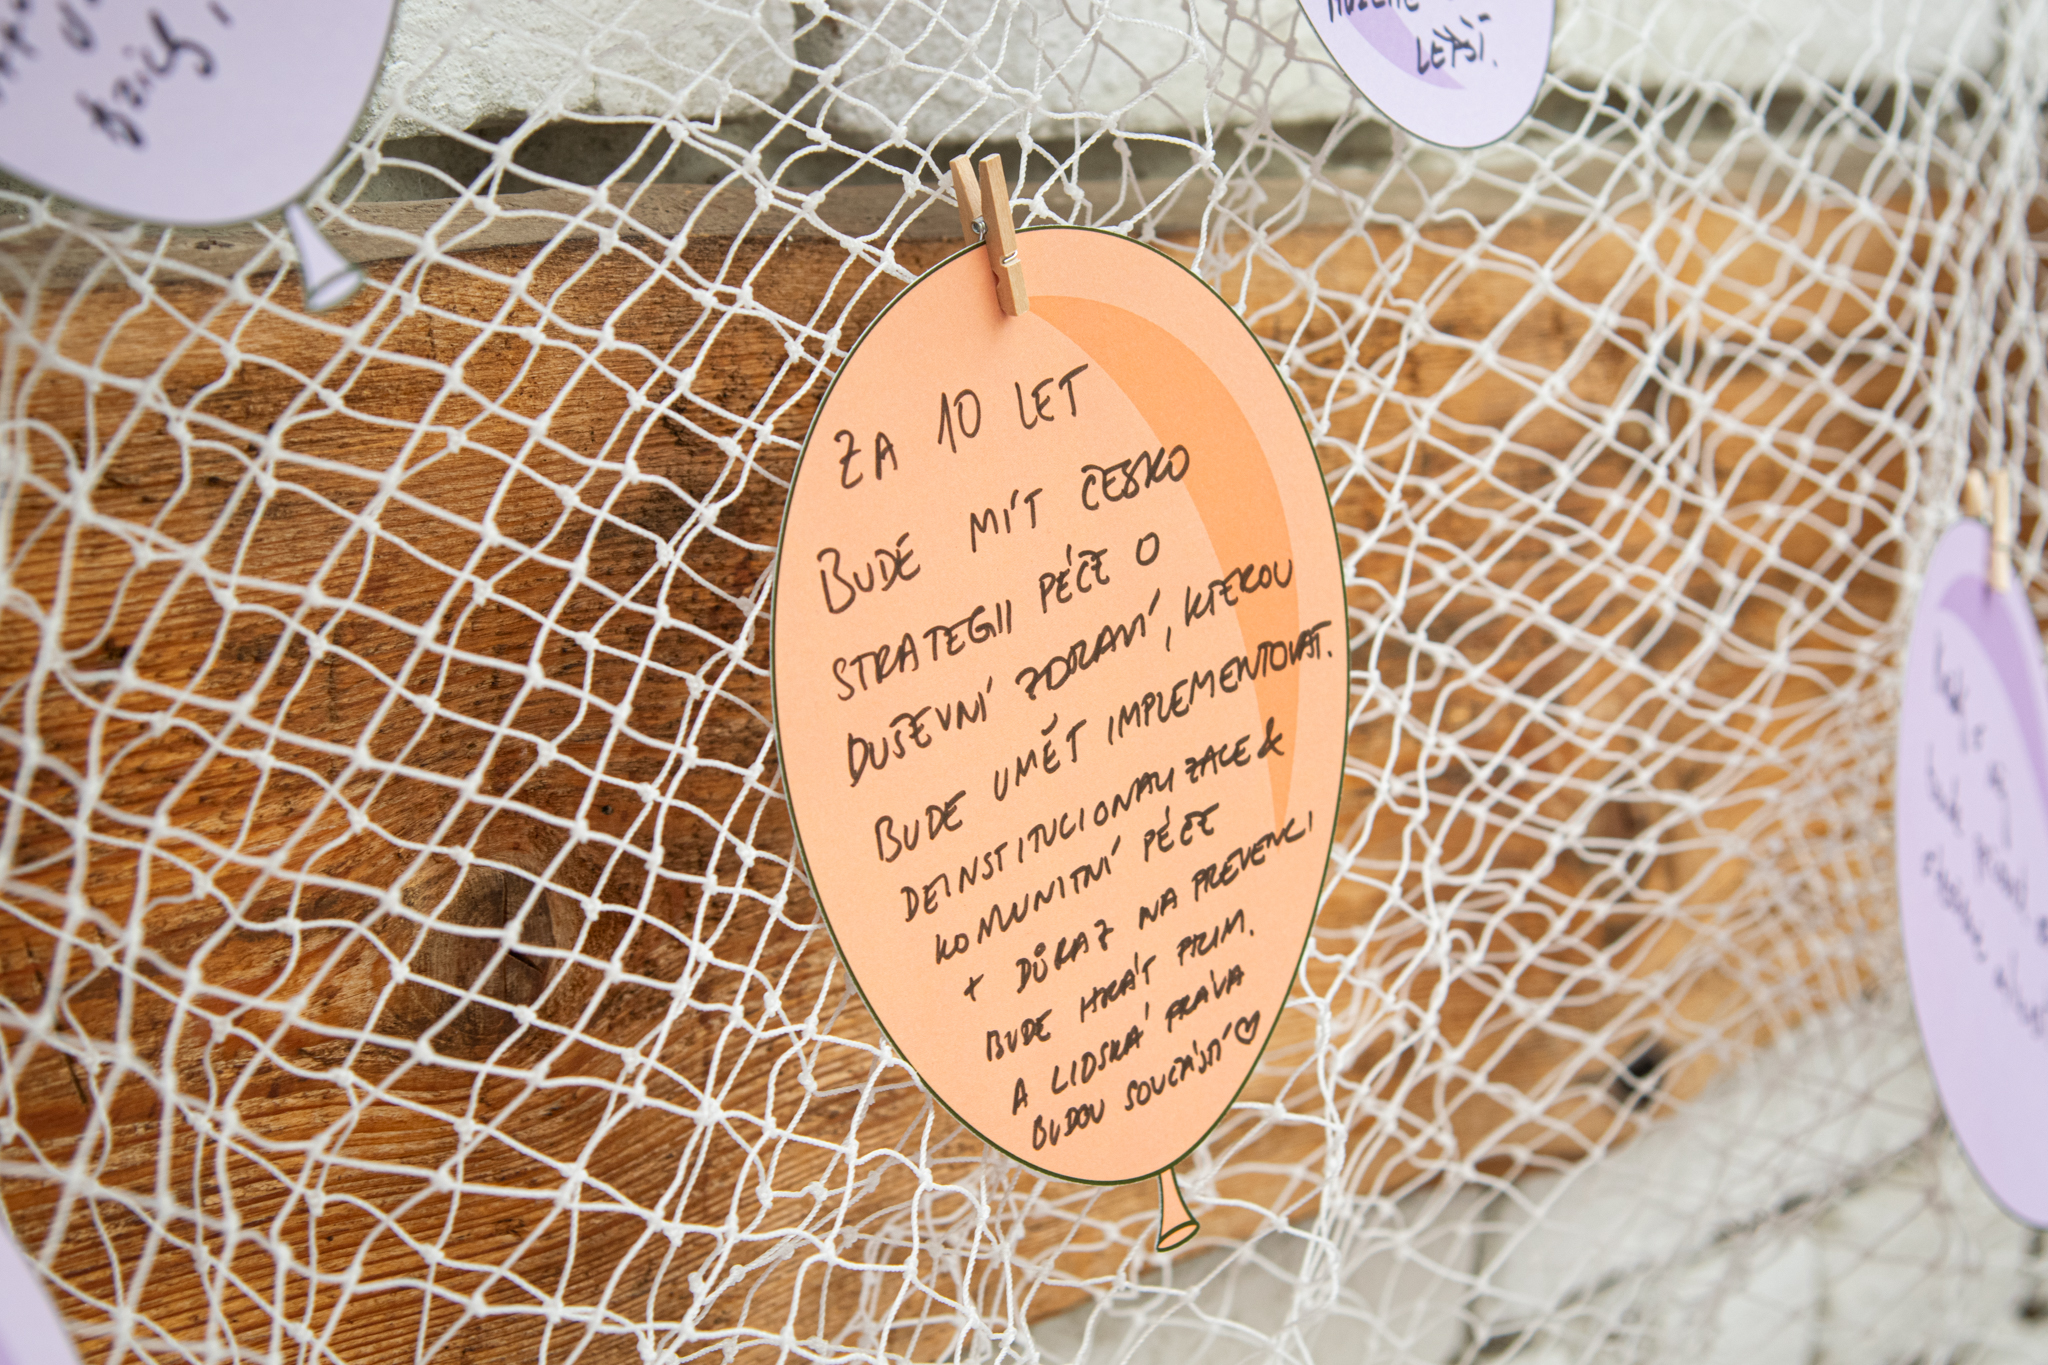 LETŠÍ.
ZA 10 LET
BUDE MÍT ČESKO
STRATEGII PÉČE O
DUŠEVNÍ ZDRAVÍ, KTEROU
BUDE UMĚT IMPLEMENTOVAT.
DEINSTITUCIONALIZACE &
KOMUNITNÍ PÉČE
+ DŮRAZ NA PREVENCI
BUDE HRÁT PRIM.
A LIDSKÁ PRÁVA
BUDOU SOUČÁSTÍ ♡